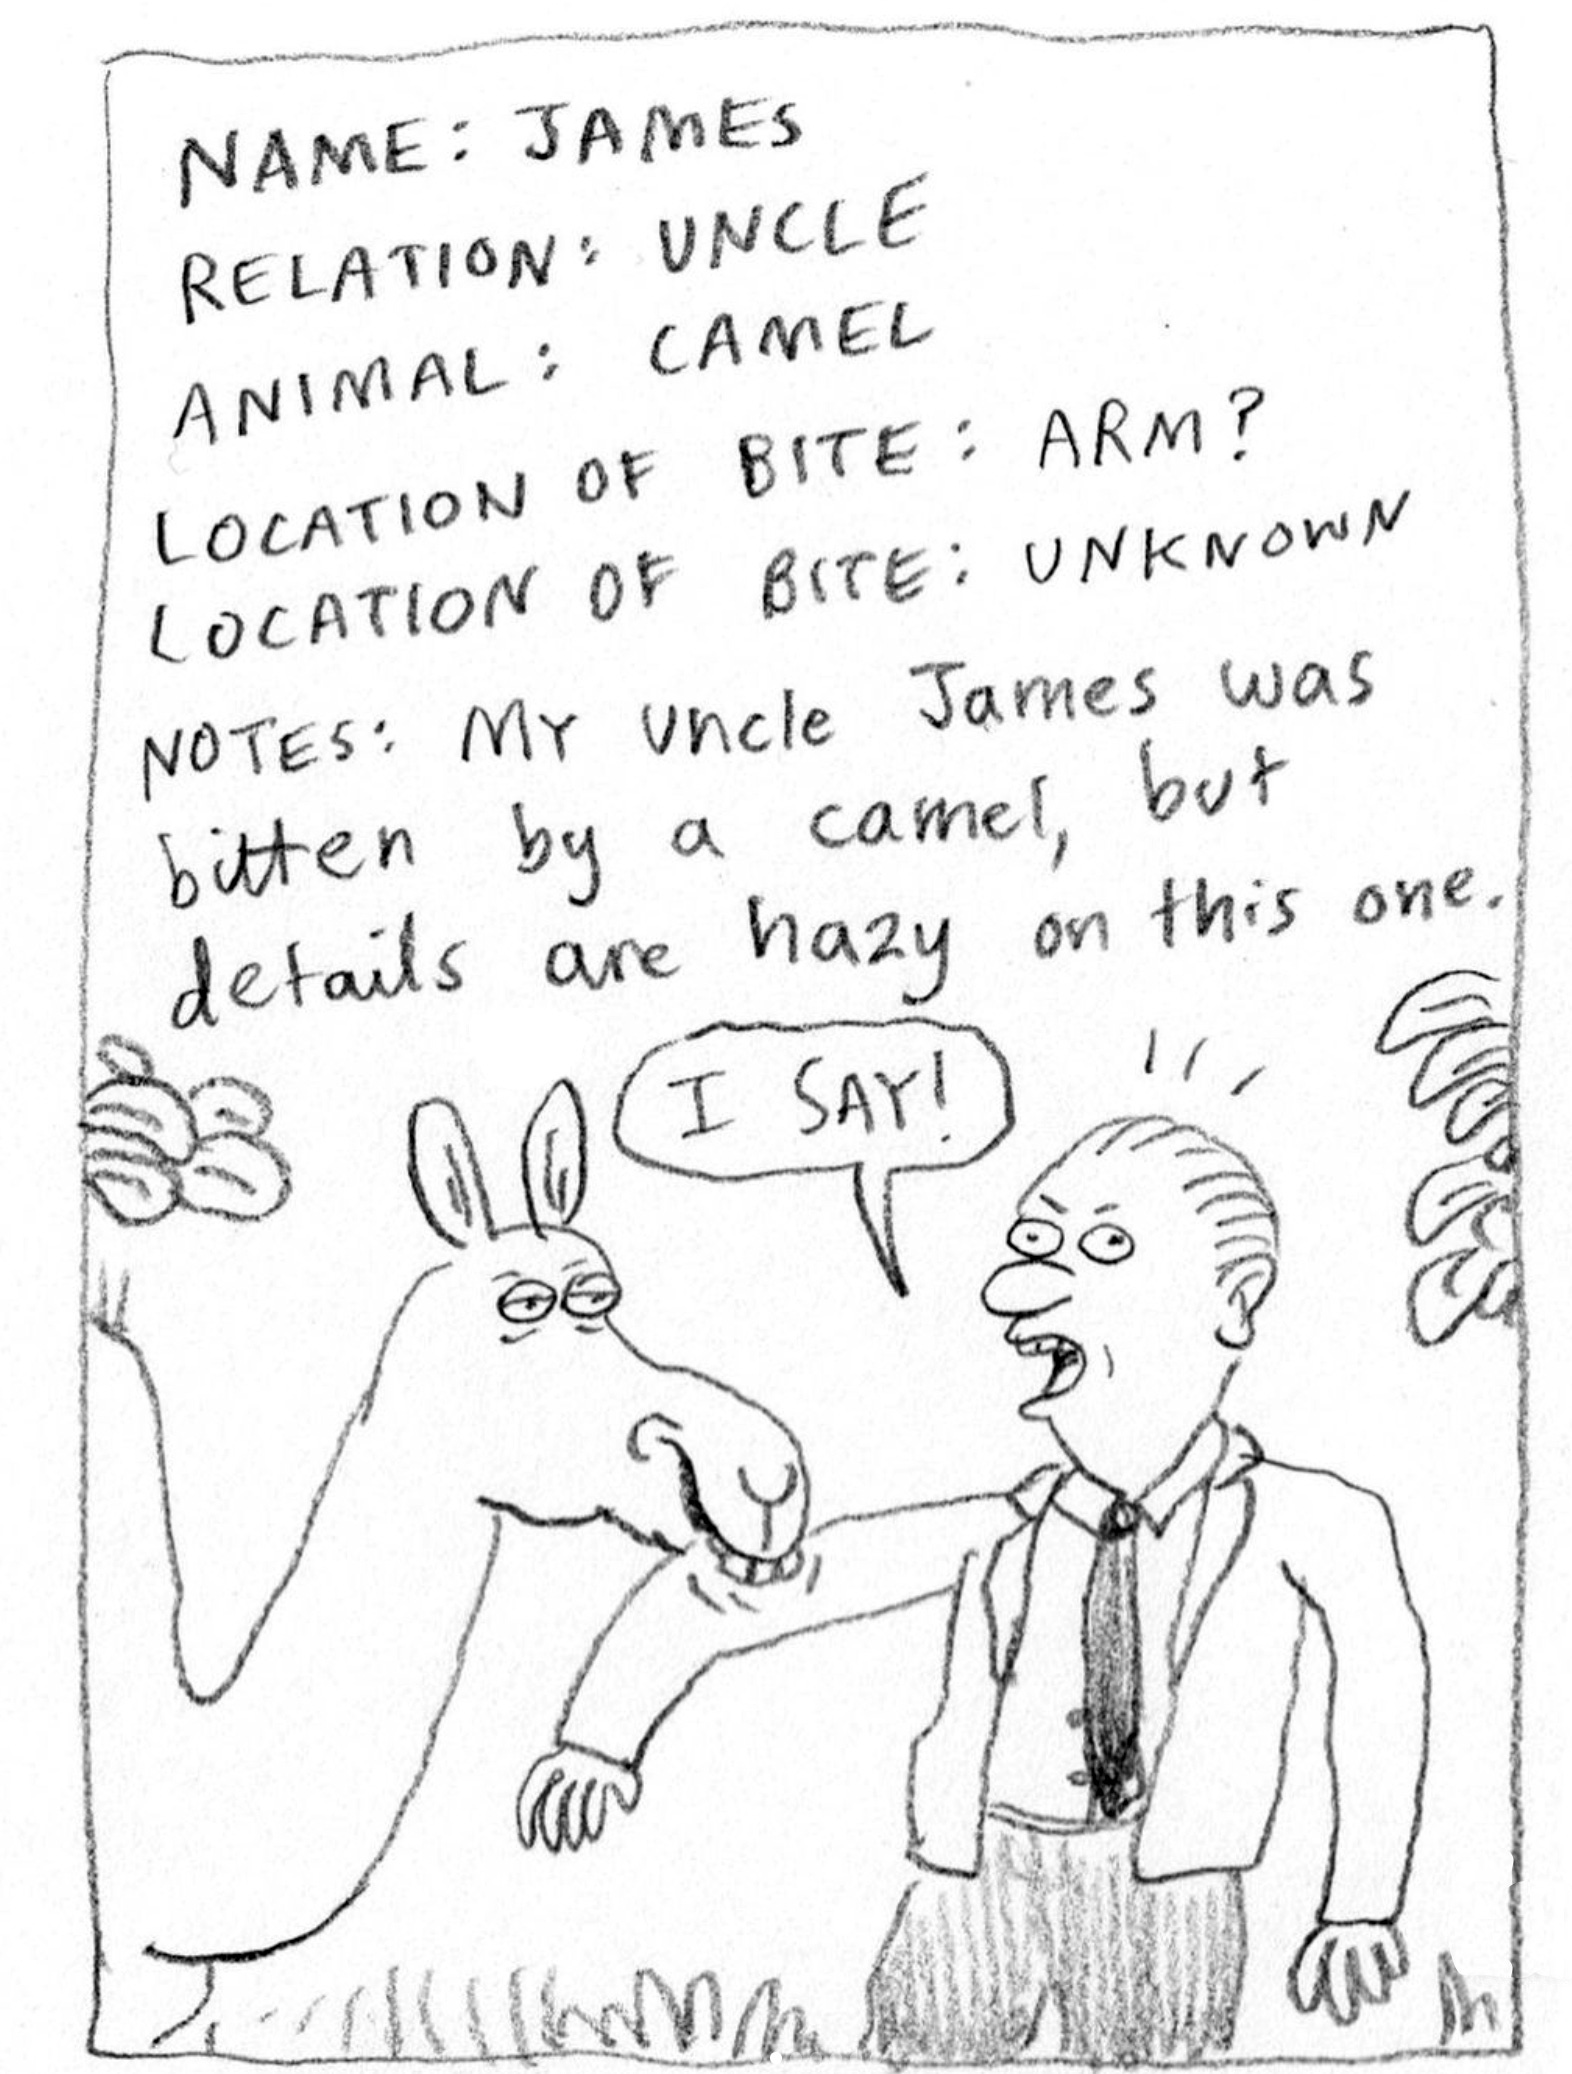 NAME: JAMES
RELATION: UNCLE
ANIMAL: CAMEL
LOCATION OF BITE: ARM?
LOCATION OF BITE: UNKNOWN
NOTES: MY uncle James was
bitten by a camel, but
details are hazy on this one.
I SAY!